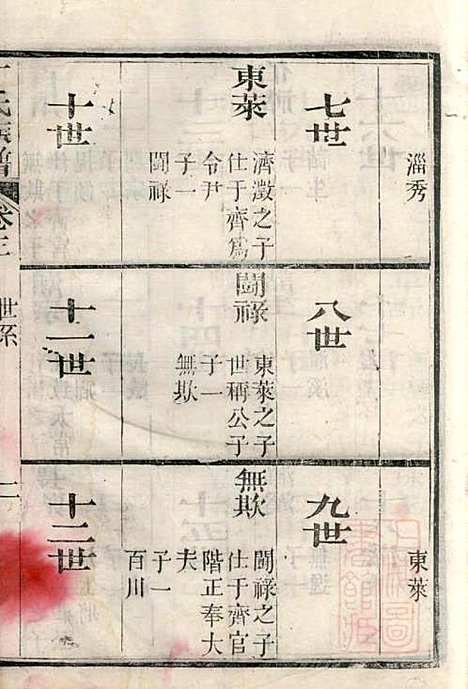 淄秀
七世
東萊
濟澂之子
仕于齊爲
令尹
子一
鬪祿
十世
八世
鬪祿
東萊之子
世稱公子
子一
無欺
十一世
東萊
九世
無欺
鬪祿之子
仕于齊官
階正奉大
夫
子一
百川
十二世
丁氏族譜
卷三
世系